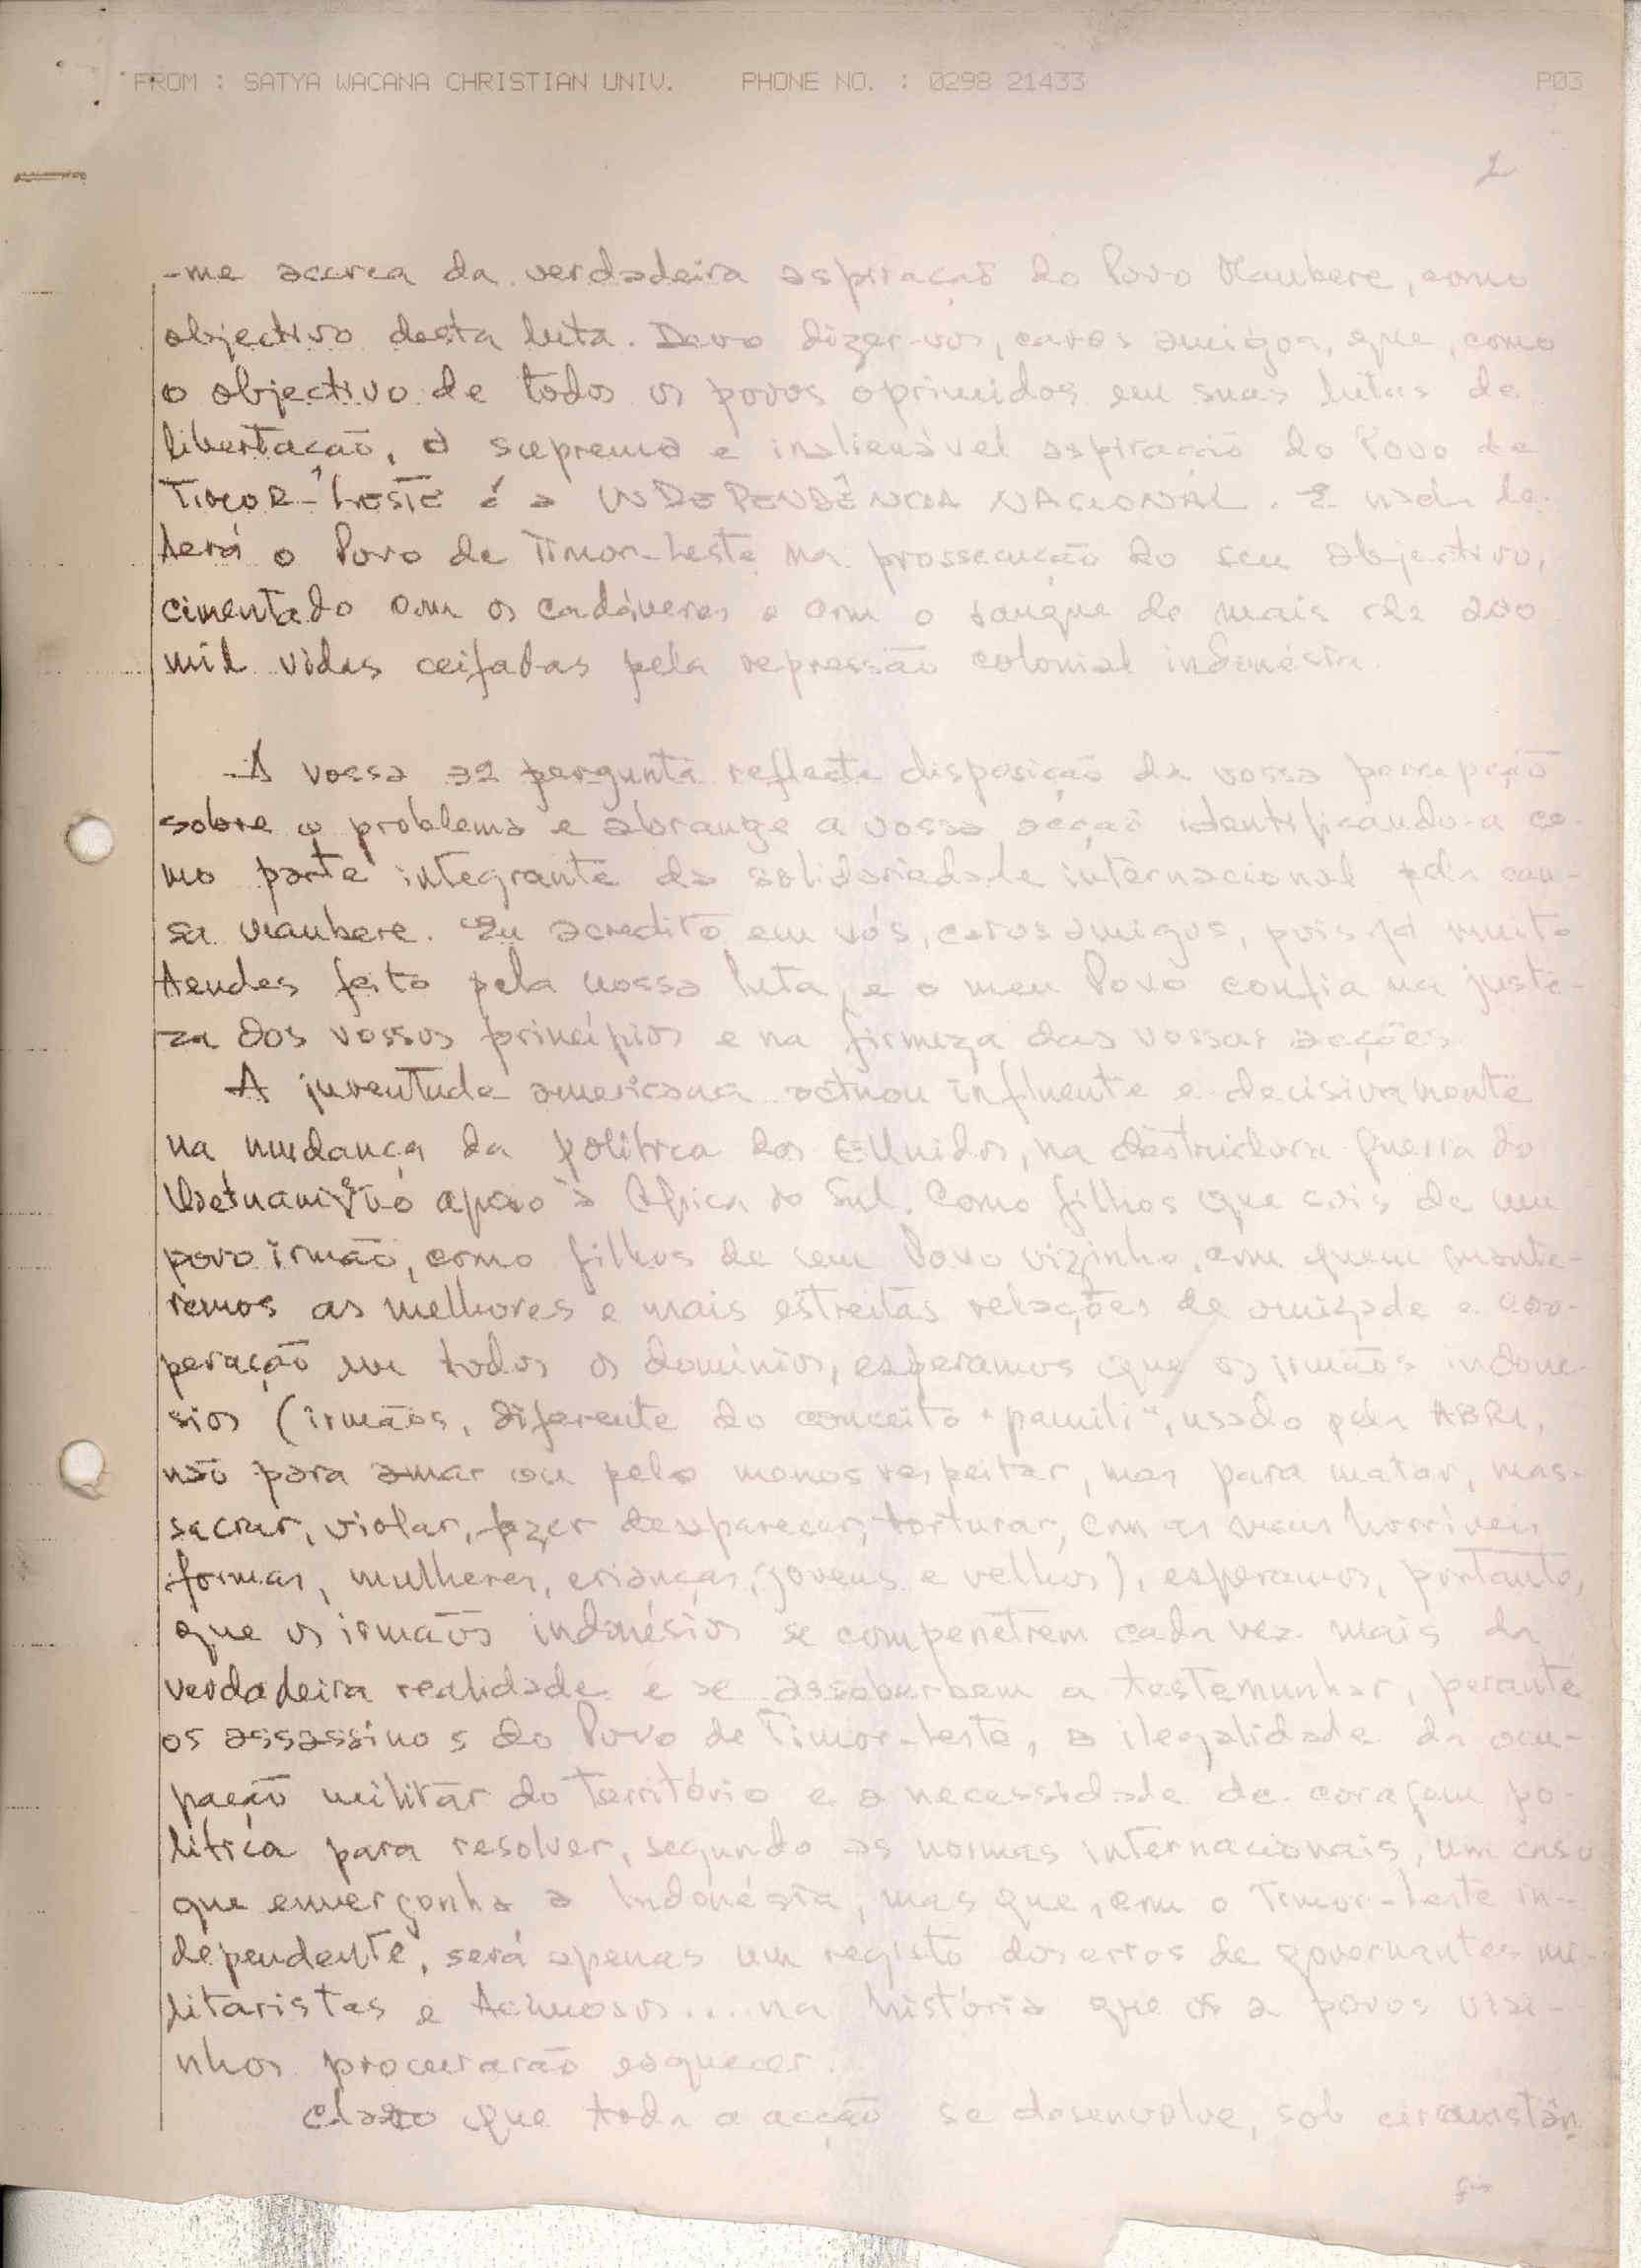 FROM : SATYA WACANA CHRISTIAN UNIV. PHONE NO. : 0298 21433 P03
2
-me acerca da verdadeira aspiração do Povo Maubere, como
objectivo desta luta. Devo dizer-vos, caros amigos, que, como
o objectivo de todos os povos oprimidos em suas lutas de
libertação, a suprema e inalienável aspiração do Povo de
TIMOR-LESTE é a INDEPENDÊNCIA NACIONAL. E nada de-
terá o Povo de Timor-Leste na prossecução do seu objectivo,
cimentado com os cadáveres e com o sangue de mais de 200
mil vidas ceifadas pela repressão colonial indonésia.
A vossa 2ª pergunta reflecte disposição da vossa percepção
sobre o problema e abrange a vossa acção identificando-a co-
mo parte integrante da solidariedade internacional pela cau-
sa maubere. Eu acredito em vós, caros amigos, pois já muito
tendes feito pela nossa luta, e o meu Povo confia na juste-
za dos vossos princípios e na firmeza das vossas acções.
A juventude americana actuou influente e decisivamente
na mudança da política dos E.Unidos, na destruidora guerra do
Vietnam e no apoio à África do Sul. Como filhos que sois de um
povo irmão, como filhos de um Povo vizinho, com quem mante-
remos as melhores e mais estreitas relações de amizade e coo-
peração em todos os domínios, esperamos que os irmãos indoné-
sios (irmãos, diferente do conceito "pamili", usado pela ABRI,
não para amar ou pelo menos respeitar, mas para matar, mas-
sacrar, violar, fazer desaparecer, torturar, com as mais horríveis
formas, mulheres, crianças, jovens e velhos), esperamos, portanto,
que os irmãos indonésios se compenetrem cada vez mais da
verdadeira realidade e se assoberbem a testemunhar, perante
os assassinos do Povo de Timor-Leste, a ilegalidade da ocu-
pação militar do território e a necessidade de coragem po-
lítica para resolver, segundo as normas internacionais, um caso
que envergonha a Indonésia, mas que, com o Timor-Leste in-
dependente, será apenas um registo dos erros de governantes mi-
litaristas e teimosos... na história que os 2 povos vizi-
nhos procurarão esquecer.
Claro que toda a acção se desenvolve, sob circunstân